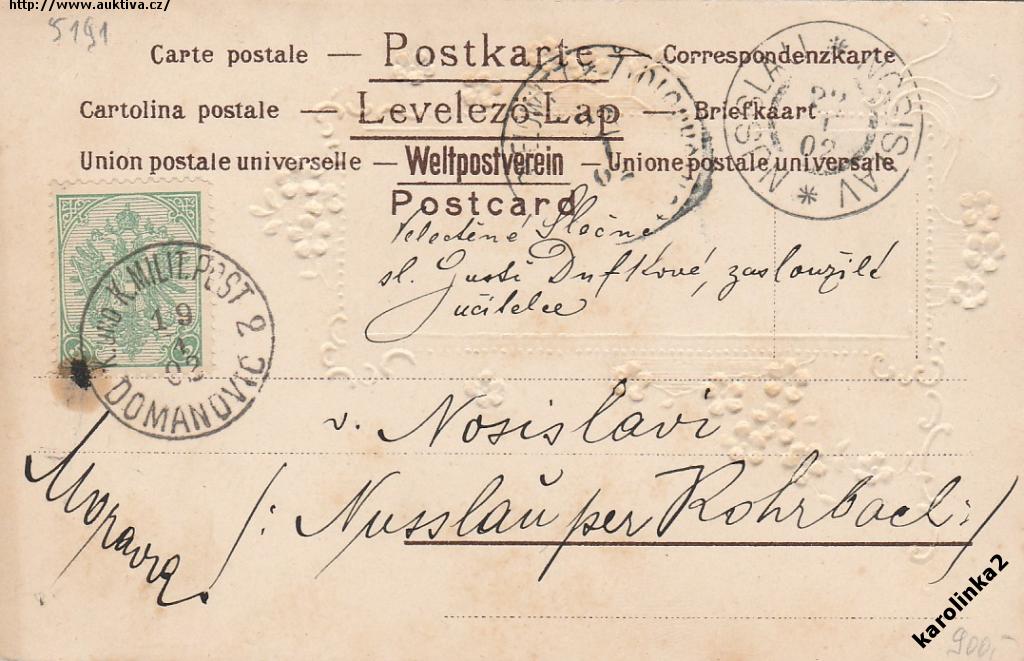 http://www.auktiva.cz/
5191
Carte postale — Postkarte — Correspondenzkarte
Cartolina postale — Levelező-Lap — Briefkaart
Union postale universelle — Weltpostverein — Unione postale universale
Postcard
NUSSLAU * NOSISLAV *
22
1
02
K. UND K. MILIT. POST 2
19
1
02
DOMANOVIC
Slečně
sl. Dufkové, zasloužilé
učitelce
v. Nosislavi
/: Nusslau per Rohrbach :/
Morava.
karolinka2
900,-